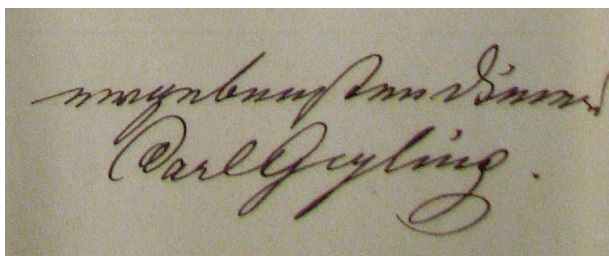 ergebensten Diener
Carl Geyling.